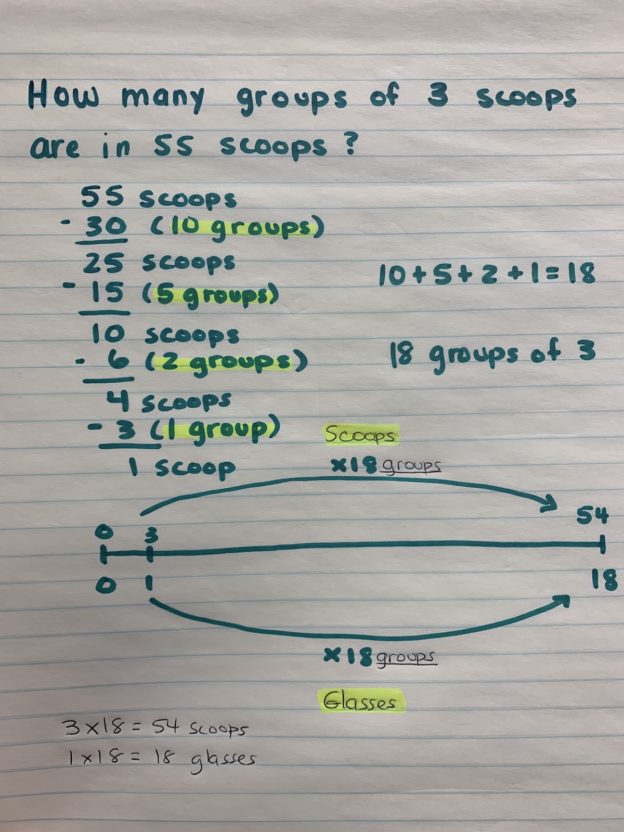 How many groups of 3 scoops
are in 55 scoops?
55 scoops
- 30 (10 groups)
25 scoops
- 15 (5 groups)
10 scoops
- 6 (2 groups)
4 scoops
- 3 (1 group)
1 scoop
10+5+2+1=18
18 groups of 3
Scoops
x18 groups
0 3 54
0 1 18
x18 groups
Glasses
3x18= 54 scoops
1x18= 18 glasses